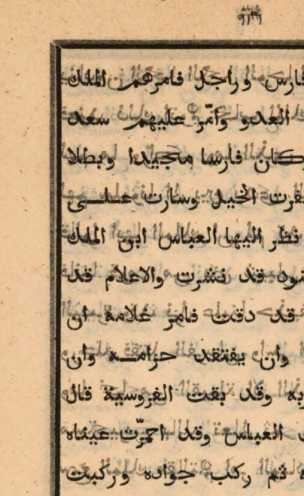 فارس وراجل فامرهم الملك
العدو وأمّر عليهم سعد
وكان فارسا مجيدا وبطلا
الخيل وسارت على
نظر اليها العباس ابن الملك
قد نشرت والاعلام قد
قد دقت فامر غلامه ان
وان يفتقد حزامه وان
به وقد بقت الفروسية قال
العباس وقد احمرّت عيناه
ثم ركب جواده وركبت